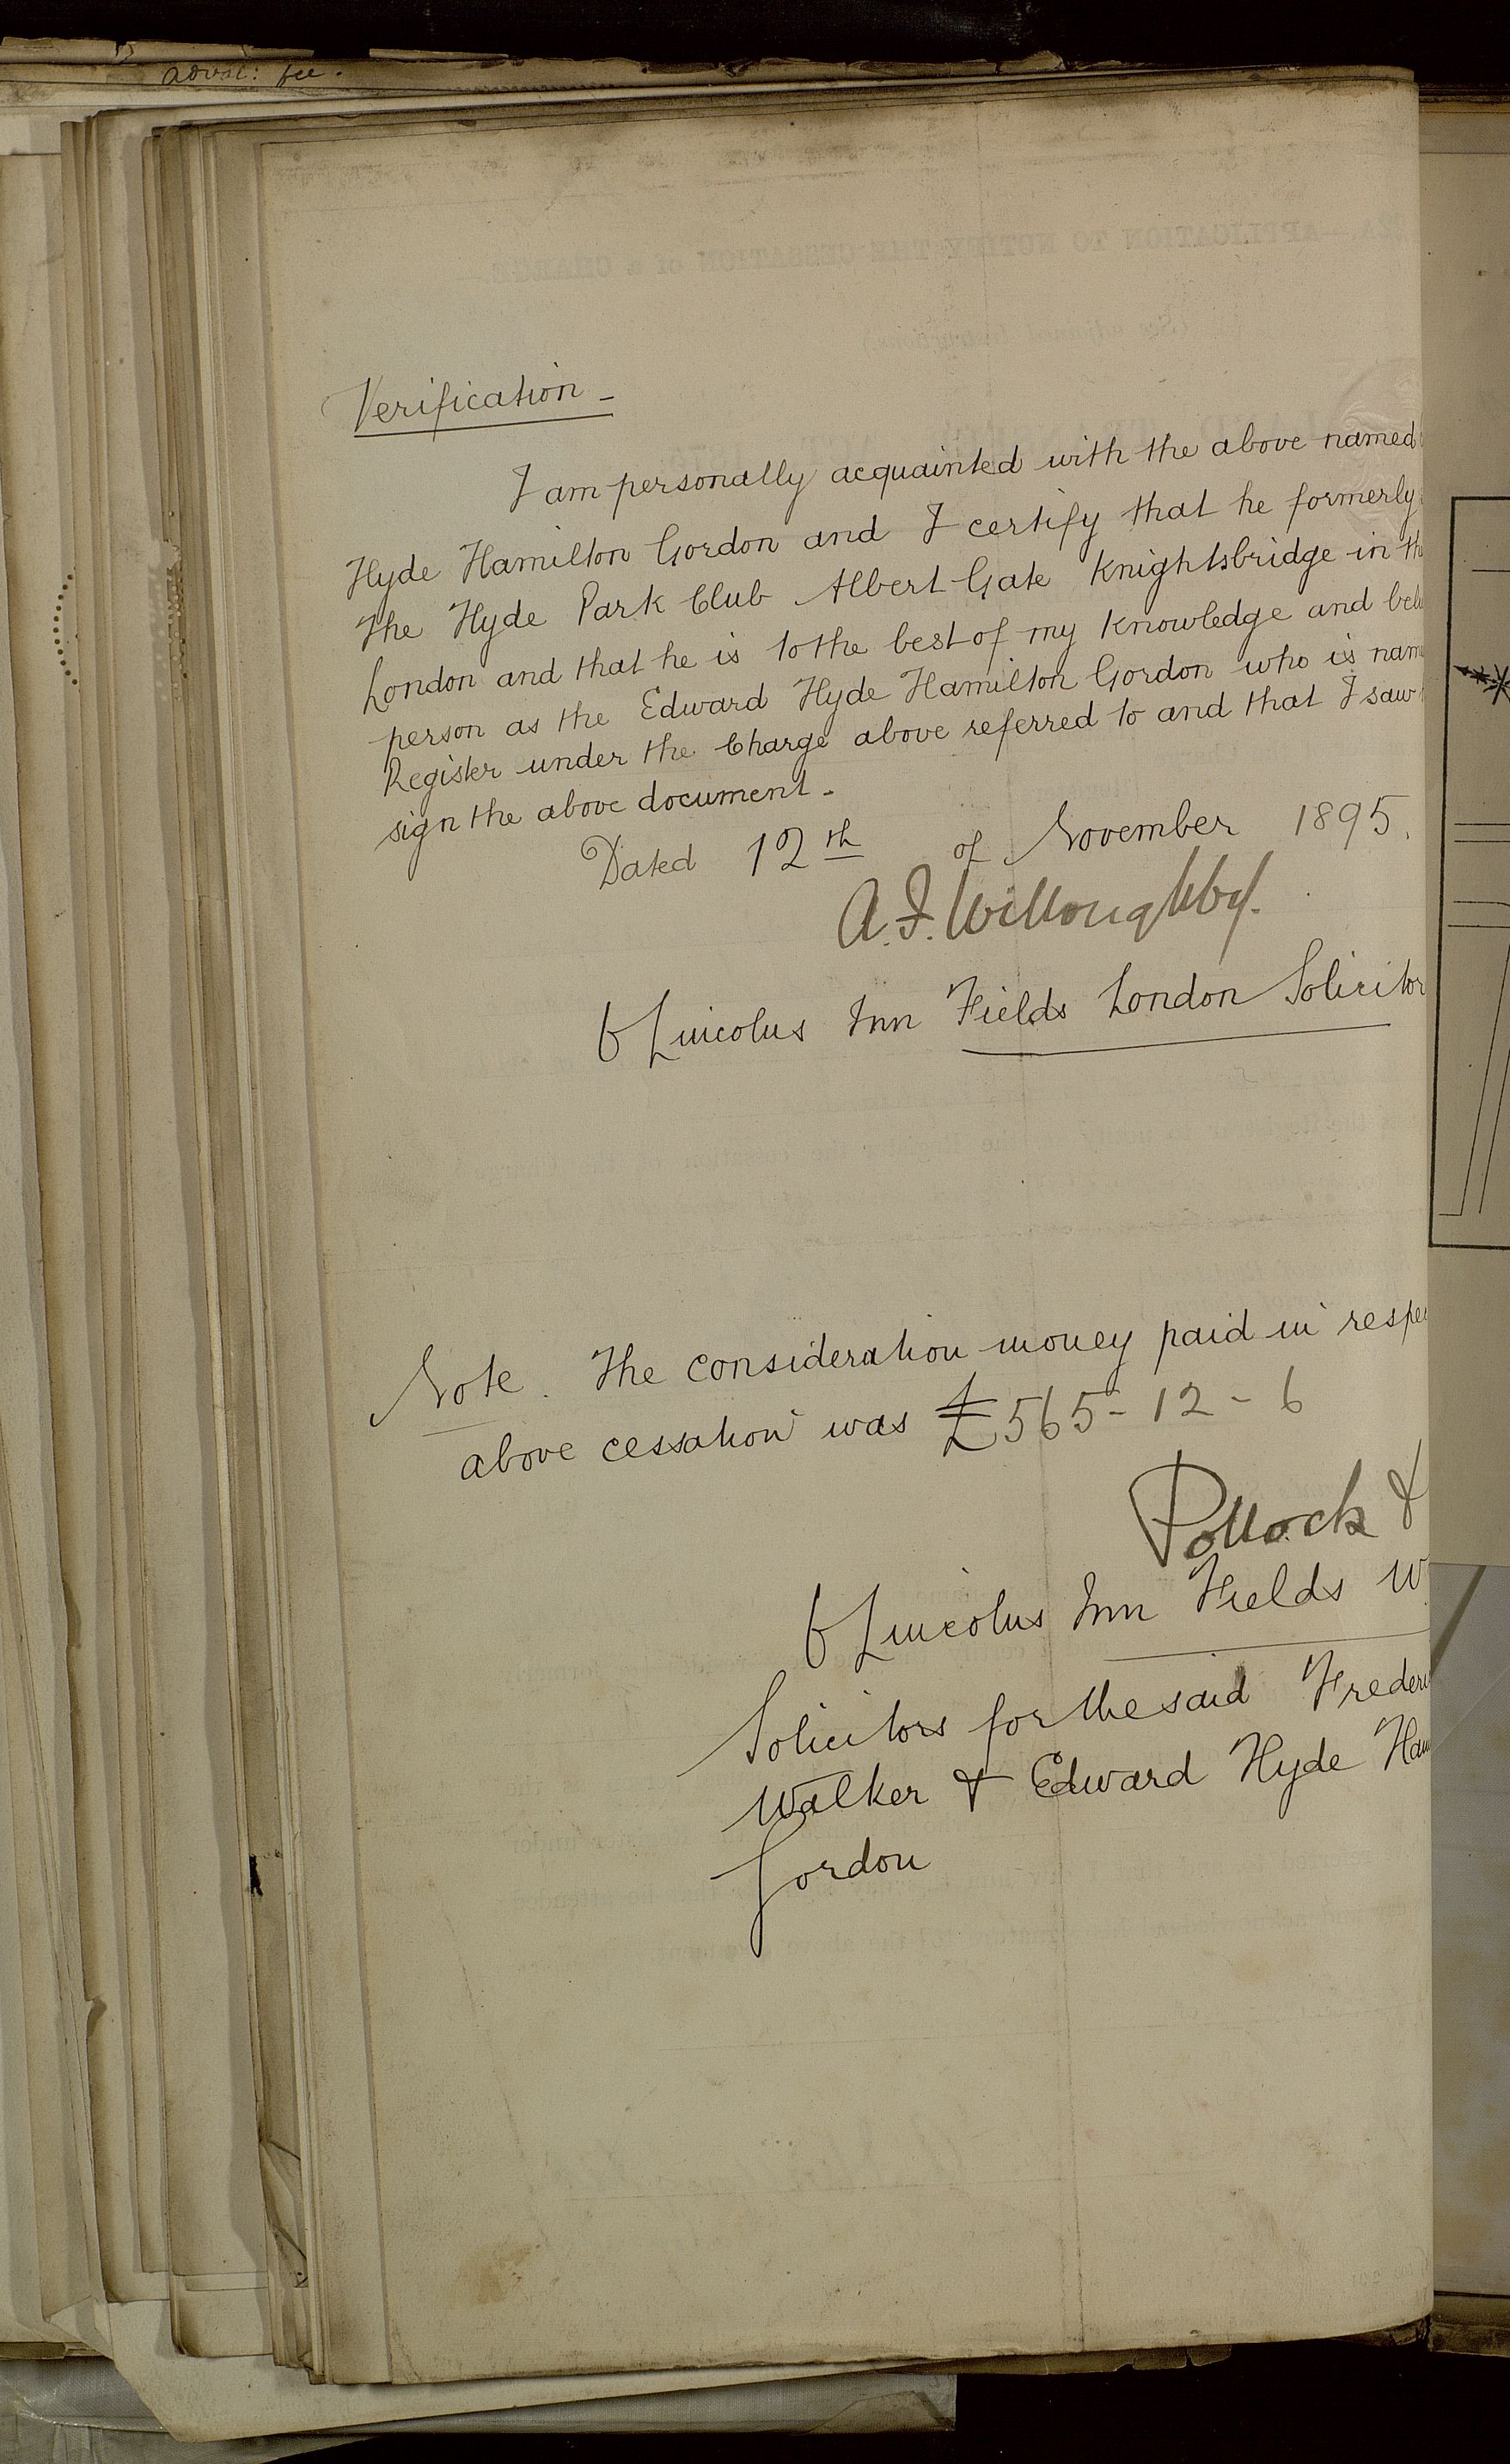 advce: fee.
Verification -
I am personally acquainted with the above named
Hyde Hamilton Gordon and I certify that he formerly
The Hyde Park Club Albert Gate Knightsbridge in th
London and that he is to the best of my knowledge and beli
person as the Edward Hyde Hamilton Gordon who is nam
Register under the Charge above referred to and that I saw
sign the above document -
Dated 12th of November 1895.
A.F. Willoughby.
6 Lincolns Inn Fields London Solicitor
Note. The consideration money paid in respec
above cessation was £565-12-6
Pollock &
6 Lincolns Inn Fields W.
Solicitors for the said Frederi
Walker & Edward Hyde Ham
Gordon